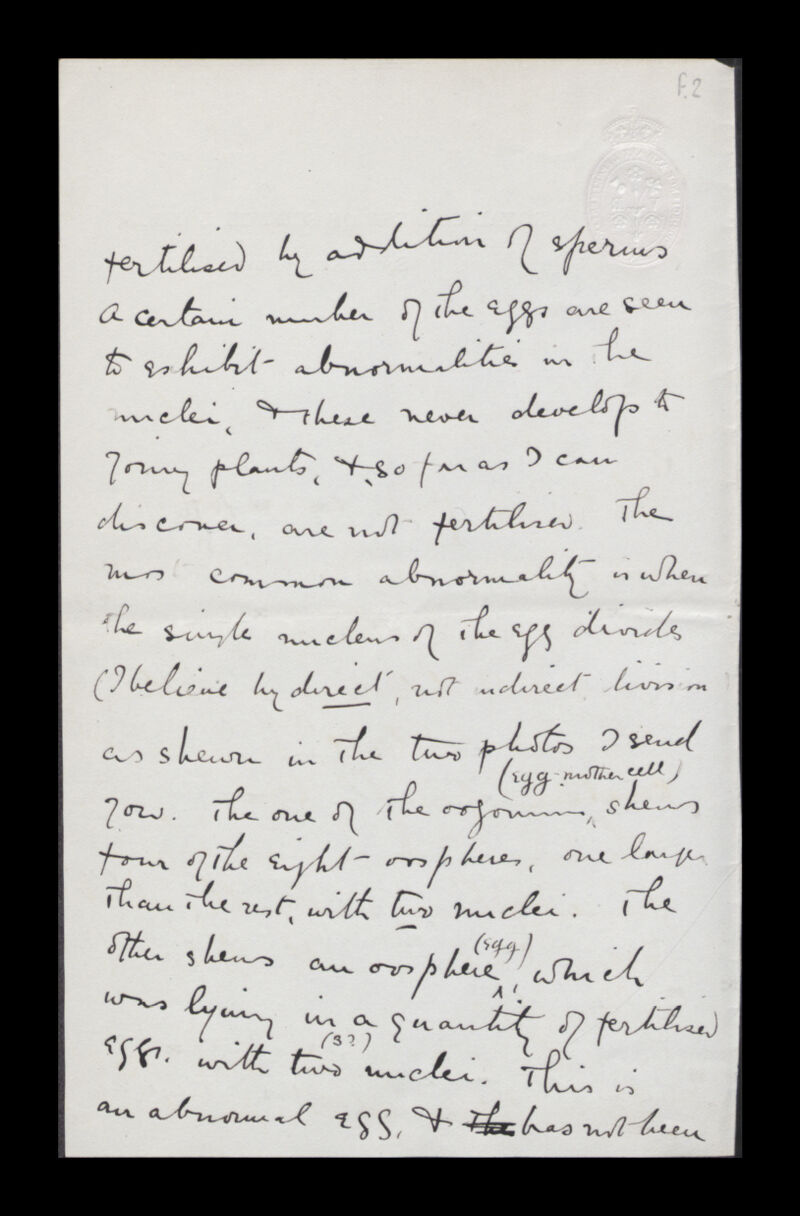 f.2
fertilised by addition of sperms
A certain number of the eggs are seen
to exhibit abnormalities in the
nuclei, & these never develop to
young plants, & so far as I can
discover, are not fertilised. The
most common abnormality is when
the single nucleus of the egg divides
(I believe by direct, not indirect division
as shewn in the two photos I send
(egg-mother cell)
you. The one of the oogonium, shews
four of the eight oospheres, one larger
than the rest, with two nuclei. The
(egg)
other shews an oosphere, which
was lying in a quantity of fertilised
(3?)
eggs. with two nuclei. This is
an abnormal egg, & the has not been